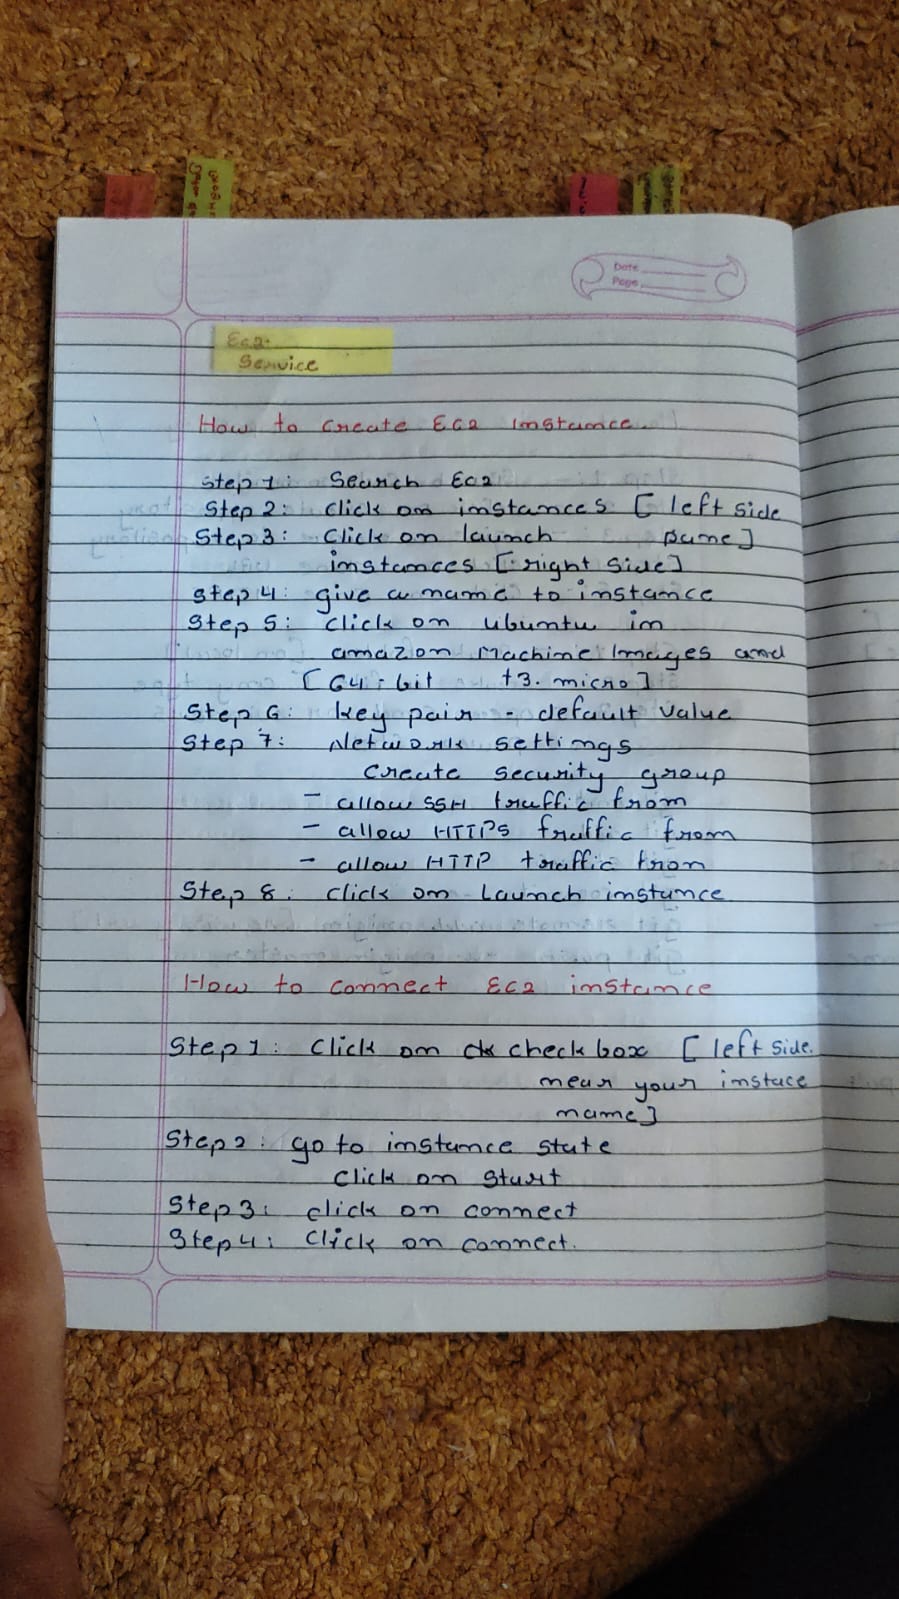 Date
Page
Ec2.
Service
How to create EC2 instance.
Step 1: Search Ec2
Step 2: click on instances [ left side
Step 3: Click on launch pane]
instances [right side]
step 4: give a name to instance
Step 5: click on ubuntu in
amazon Machine Images and
[64-bit t3.micro]
Step 6: key pair - default value
Step 7: Network settings
Create security group
- allow SSH traffic from
- allow HTTPs traffic from
- allow HTTP traffic from
Step 8. Click on Launch instance
How to connect EC2 instance
Step 1: Click on check box [ left side.
near your instace
name]
Step 2: go to instance state
click on start
Step 3: click on connect
Step 4: Click on connect.